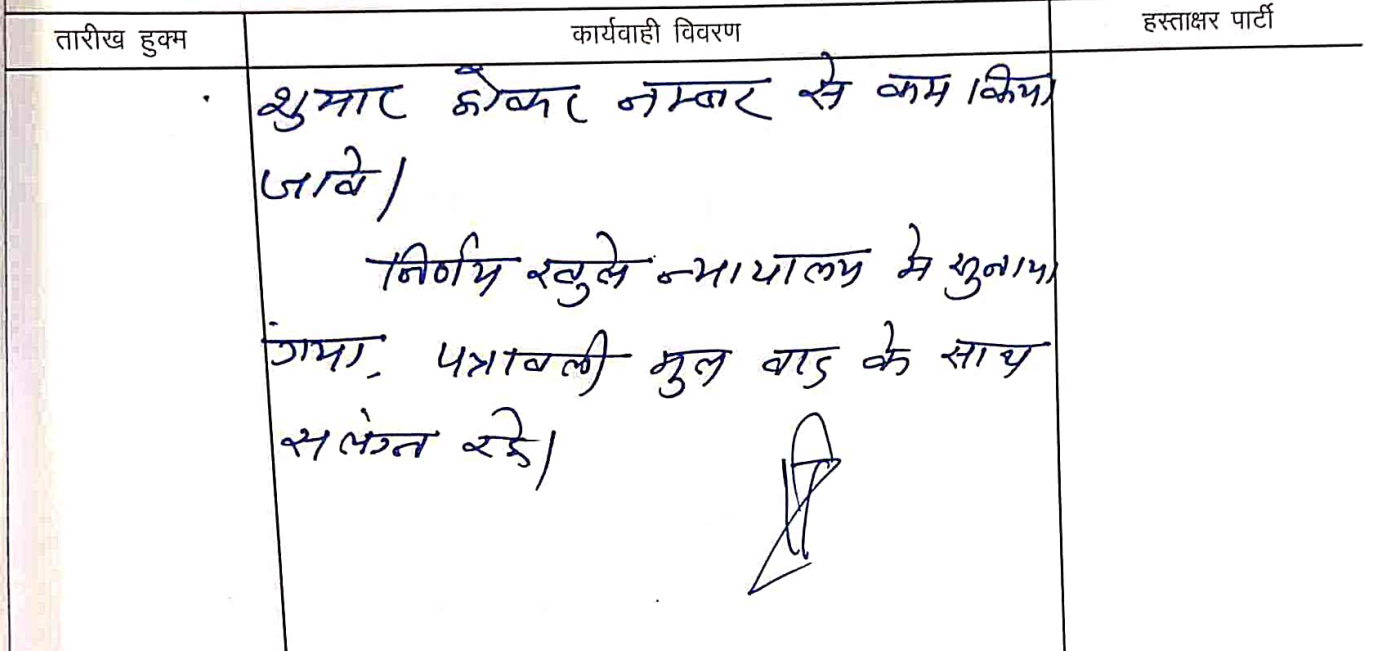 तारीख हुक्म कार्यवाही विवरण हस्ताक्षर पार्टी
शुमार होकर नम्बर से कम किया
जावे।
निर्णय खुले न्यायालय मे सुनाया
गया, पत्रावली मुल वाद के साथ
सलंग्न रहे।